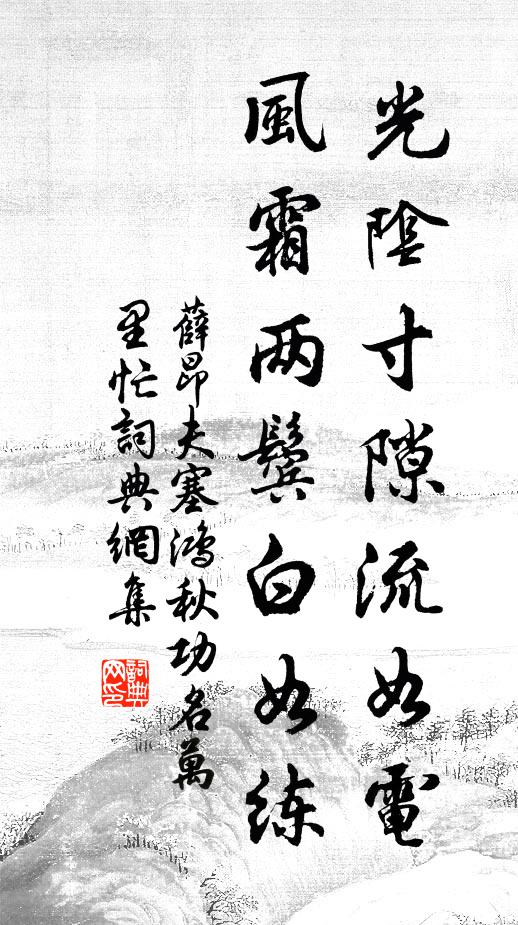 光陰寸隙流如電
風霜两鬢白如練
薛昂夫塞鴻秋功名萬
里忙詞典網集
詞典
网印